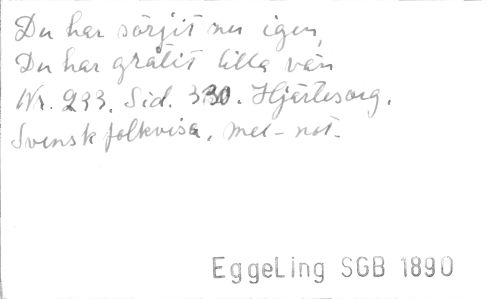 Du har sörjit nu igen,
Du har gråtit lilla vän
Nr. 293. Sid. 330. Hjärtesorg.
Svensk folkvisa. mel-not.
EggeLing SGB 1890